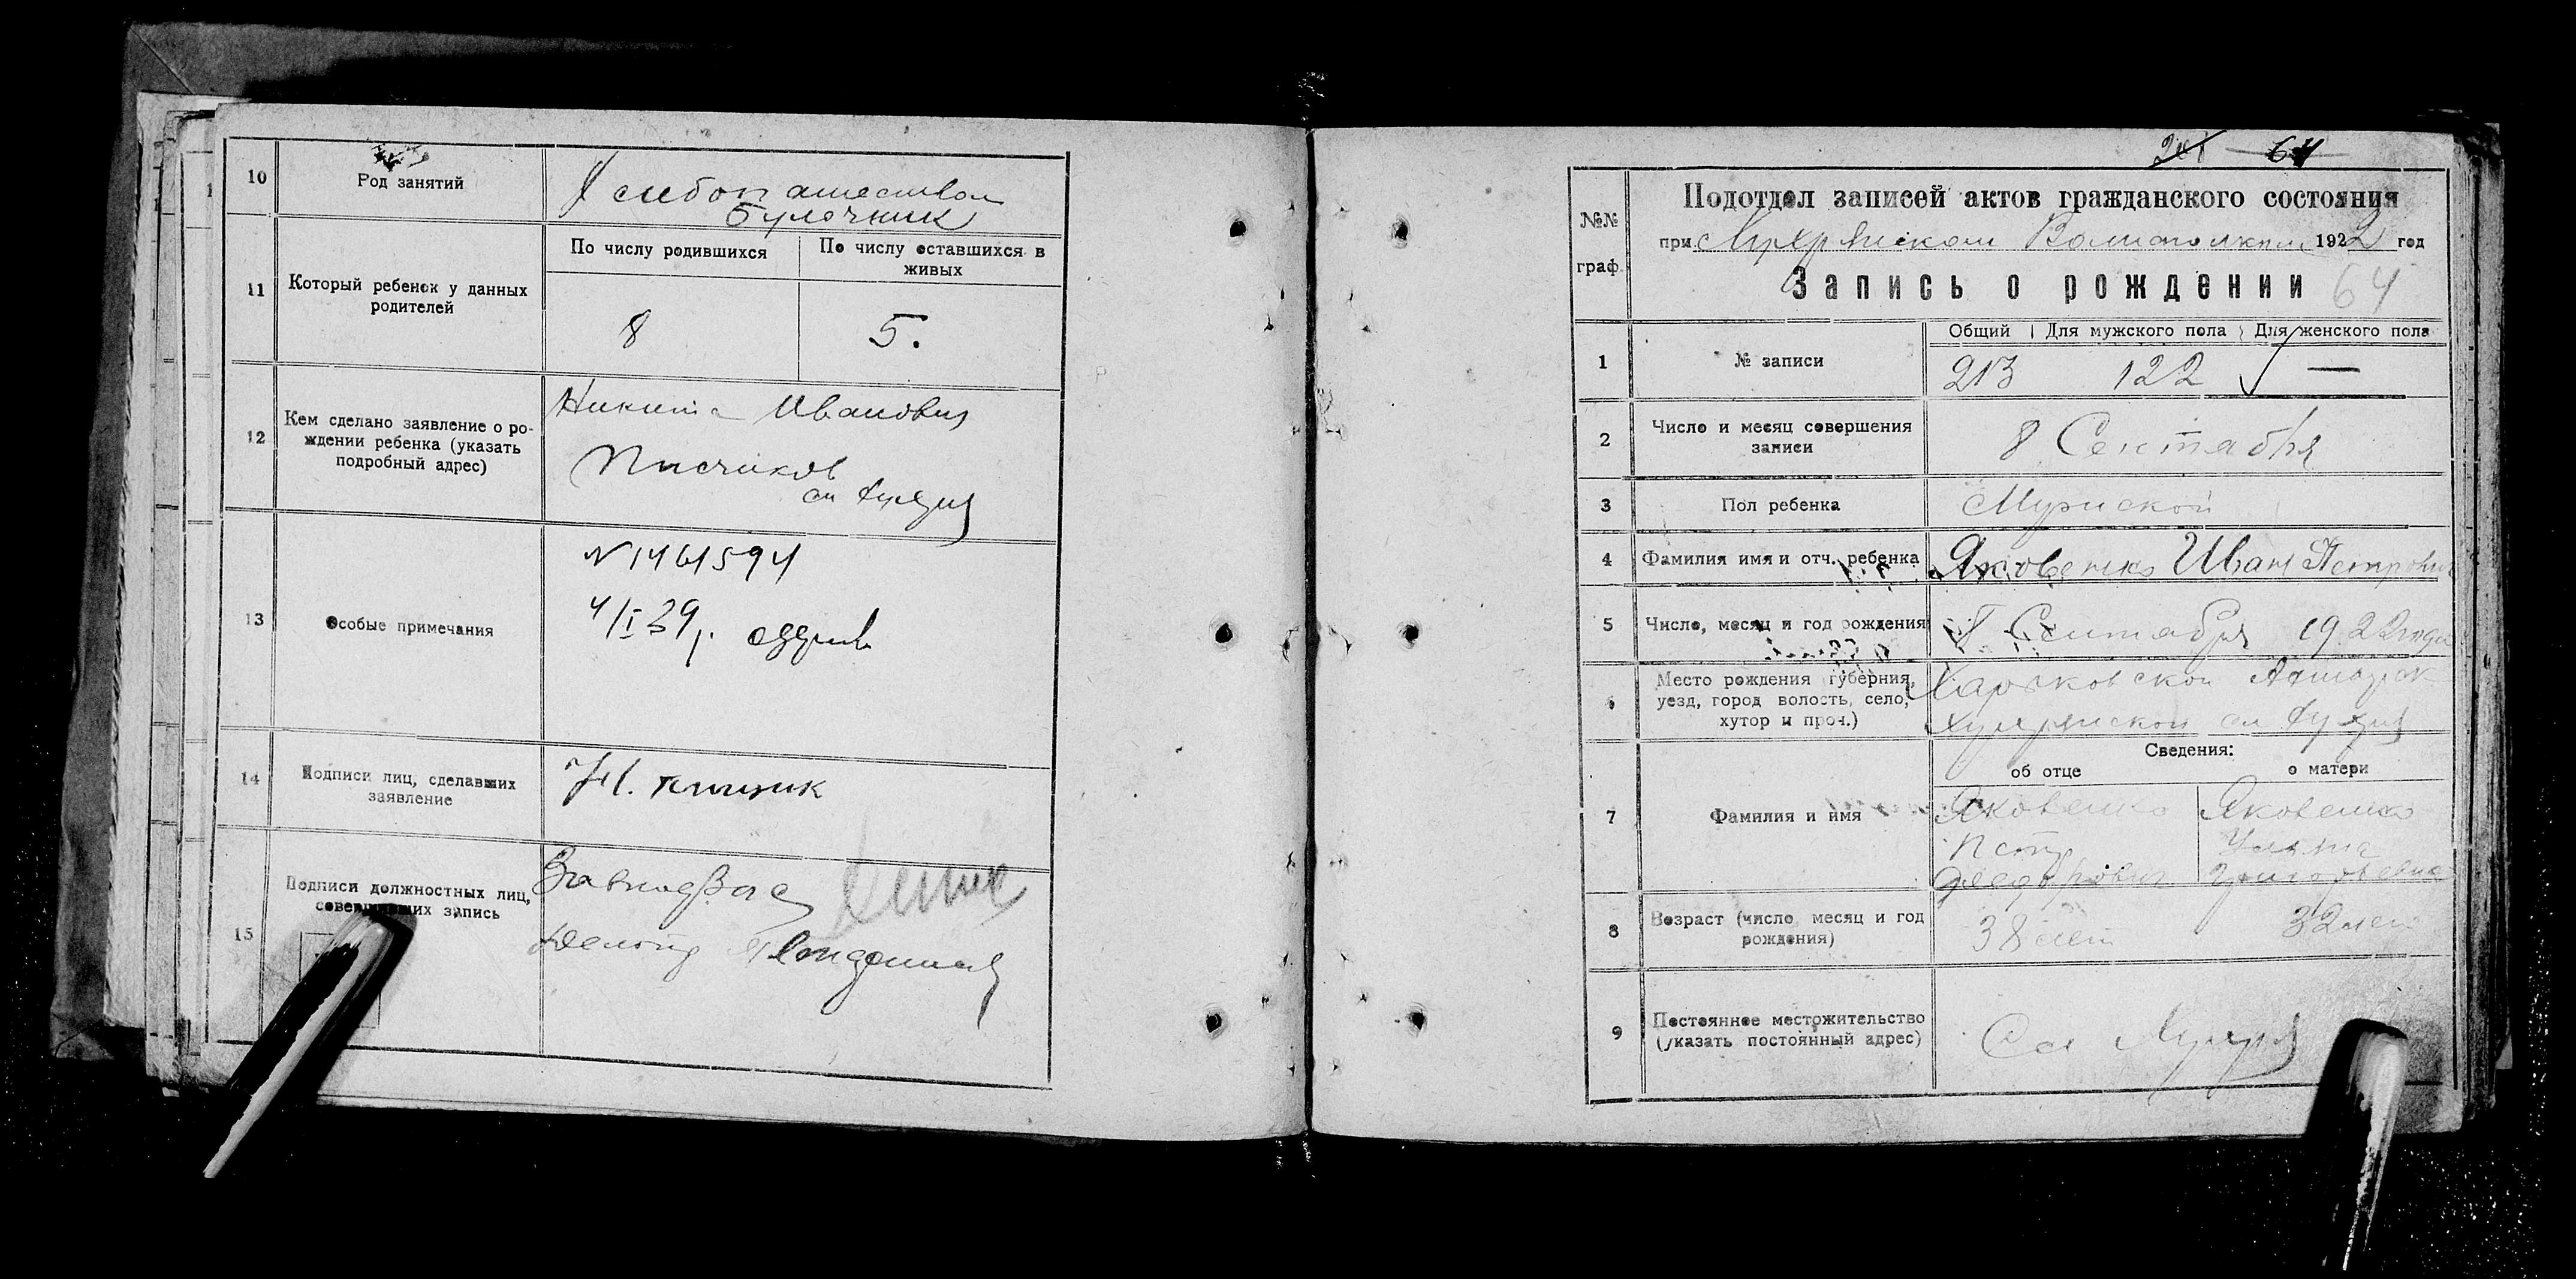 10
Род занятий
Хлебопашеством
булочник
11
Который ребенок у данных
родителей
По числу родившихся
По числу оставшихся в
живых
8
5.
12
Кем сделано заявление о ро-
ждении ребенка (указать
подробный адрес)
Никита Иванович
13
Особые примечания
N 1461594
4/I 39 г.
14
Подписи лиц, сделавших
заявление
15
Подписи должностных лиц,
совершивших запись
64
№№
граф.
Подотдел записей актов гражданского состояния
при 1922 год
Запись о рождении 64
1
№ записи
Общий
Для мужского пола
Для женского пола
213
122
—
2
Число и месяц совершения
записи
8 Сентября
3
Пол ребенка
Мужской
4
Фамилия имя и отч. ребенка
Яковенко Иван Петрович
5
Число, месяц и год рождения
Сентября 1922 года
6
Место рождения губерния,
уезд, город волость, село,
хутор и проч.)
Харьковской
Сведения:
об отце
о матери
7
Фамилия и имя
Яковенко
Петр
Федорович
Яковенко
Ульяна
Григорьевна
8
Возраст (число месяц и год
рождения)
38 лет
32 лет
9
Постоянное местожительство
(указать постоянный адрес)
Сл